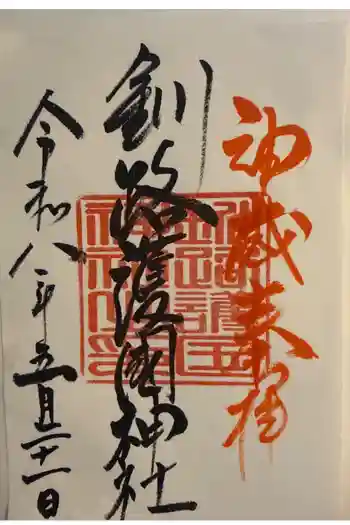 奉拝
釧路護國神社
令和八年五月二十一日